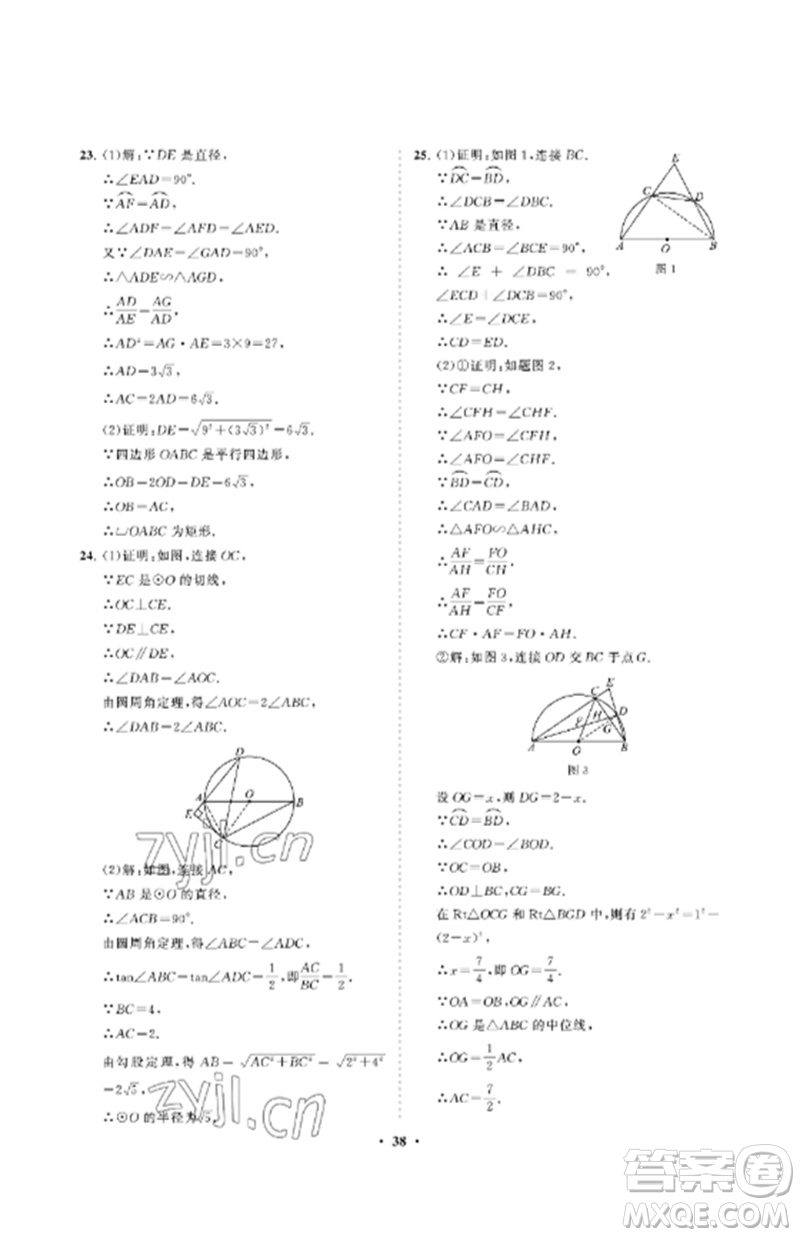 23. (1)解:∵DE 是直径,
∴∠EAD=90°.
∵⌒AF=⌒AD,
∴∠ADF=∠AFD=∠AED.
又∵∠DAE=∠GAD=90°,
∴△ADE∽△AGD.
∴AD/AE=AG/AD,
∴AD²=AG·AE=3×9=27,
∴AD=3√3,
∴AC=2AD=6√3.
(2)证明:DE=√(9²+(3√3)²)=6√3.
∵四边形 OABC 是平行四边形,
∴OB=2OD=DE=6√3,
∴OB=AC,
∴▱OABC 为矩形.
24. (1)证明:如图,连接 OC,
∵EC 是⊙O 的切线,
∴OC⊥CE.
∵DE⊥CE,
∴OC∥DE,
∴∠DAB=∠AOC.
由圆周角定理,得∠AOC=2∠ABC,
∴∠DAB=2∠ABC.
D
A
O
B
E
C
(2)解:如图,连接 AC,
∵AB 是⊙O 的直径,
∴∠ACB=90°.
由圆周角定理,得∠ABC=∠ADC,
∴tan∠ABC=tan∠ADC=1/2,即AC/BC=1/2.
∵BC=4,
∴AC=2.
由勾股定理,得 AB=√(AC²+BC²)=√(2²+4²)
=2√5,
∴⊙O 的半径为√5.
25. (1)证明:如图 1,连接 BC.
∵⌒DC=⌒BD,
∴∠DCB=∠DBC.
∵AB 是直径,
∴∠ACB=∠BCE=90°,
∴∠E+∠DBC=90°,
∠ECD+∠DCB=90°,
∴∠E=∠DCE,
∴CD=ED.
E
C
D
A
O
B
图 1
(2)①证明:如题图 2,
∵CF=CH,
∴∠CFH=∠CHF.
∵∠AFO=∠CFH,
∴∠AFO=∠CHF.
∵⌒BD=⌒CD,
∴∠CAD=∠BAD,
∴△AFO∽△AHC,
∴AF/AH=FO/CH,
∴AF/AH=FO/CF,
∴CF·AF=FO·AH.
②解:如图 3,连接 OD 交 BC 于点 G.
C
E
F
H
D
G
A
O
B
图 3
设 OG=x,则 DG=2-x,
∵⌒CD=⌒BD,
∴∠COD=∠BOD.
∵OC=OB,
∴OD⊥BC,CG=BG.
在 Rt△OCG 和 Rt△BGD 中,则有 2²-x²=1²-
(2-x)²,
∴x=7/4,即 OG=7/4,
∵OA=OB,OG∥AC,
∴OG 是△ABC 的中位线,
∴OG=1/2AC,
∴AC=7/2.
· 38 ·
zyjl.cn
zyjl.cn
答案圈
MXQE.COM